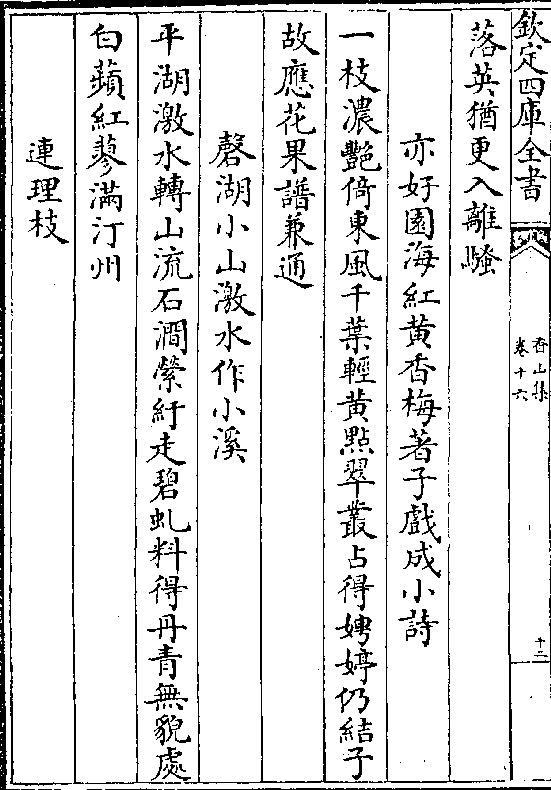 欽定四庫全書
香山集
卷十六
十二
落英猶更入離騷
亦好園海紅黃香梅著子戲成小詩
一枝濃艷倚東風千葉輕黃點翠叢占得娉婷仍結子
故應花果譜兼通
磬湖小山激水作小溪
平湖激水轉山流石澗縈紆走碧虬料得丹青無貌處
白蘋紅蓼滿汀州
連理枝